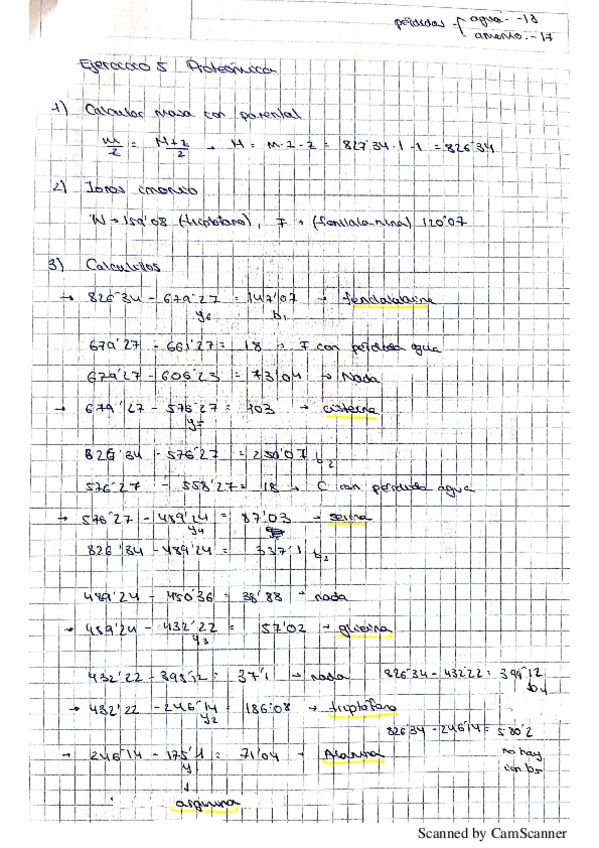 pérdidas { agua - -18
amonio. - 17
Ejercicio 5 Proteómica
1) Calcular masa con parental
m/z = M+z/z → M = m·z - z = 827'34·1 - 1 = 826'34
2) Iones imonio
W → 159'08 (triptófano), F → (fenilalanina) 120'07
3) Calculitos
→ 826'34 - 679'27 = 147'07 → fenilalanina
y6 b1
679'27 - 661'27 = 18 → F con pérdida agua
679'27 - 606'23 = 73'04 → Nada
→ 679'27 - 576'27 = 103 → cisteína
y5
826'34 - 576'27 = 250'07 b2
576'27 - 558'27 = 18 → C con pérdida agua
→ 576'27 - 489'24 = 87'03 → serina
y4
826'34 - 489'24 = 337'1 b3
489'24 - 450'36 = 38'88 → nada
→ 489'24 - 432'22 = 57'02 → glicina
y3
432'22 - 395'12 = 37'1 → nada 826'34 - 432'22 = 394'12
b4
→ 432'22 - 246'14 = 186'08 → triptófano
y2
826'34 - 246'14 = 580'2
→ 246'14 - 175'1 = 71'04 → Alanina
y1
no hay
con b5
arginina
Scanned by CamScanner